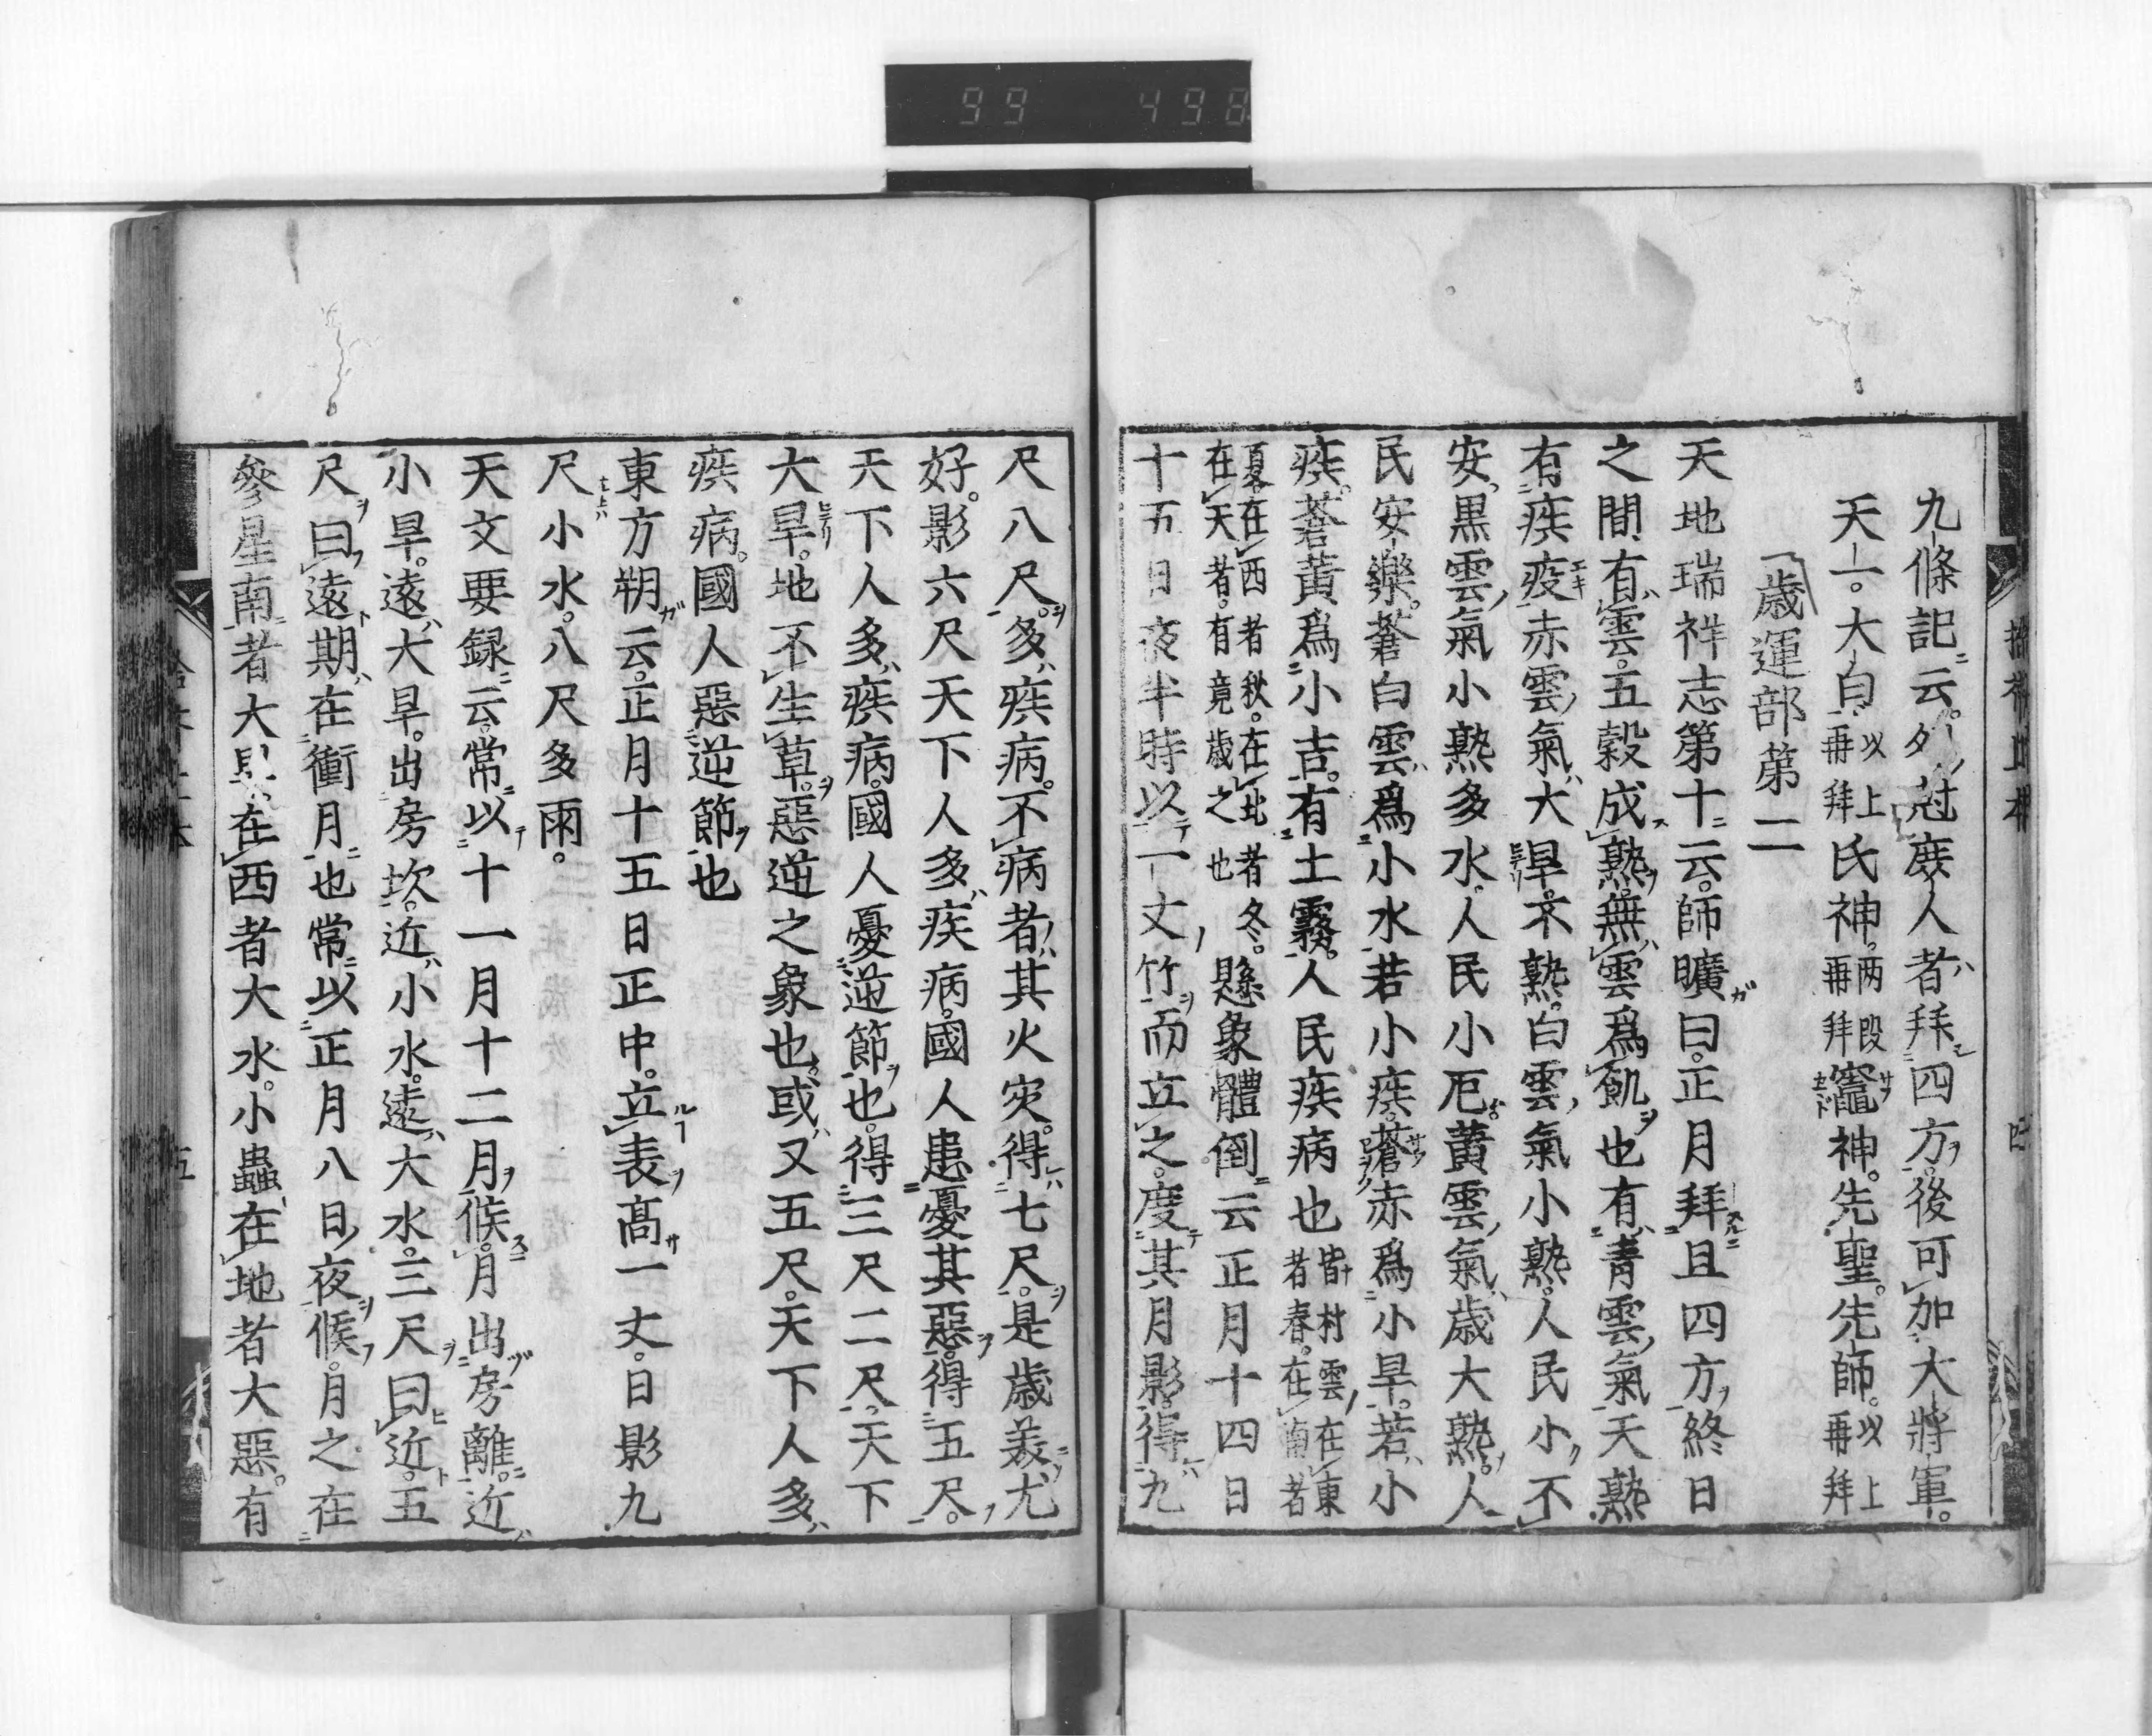 99 498
九條記云。夕冠庶人者拜四方。後可加大將軍。
天一。大白以上再拜氏神。兩段再拜竈神。先聖。先師。以上再拜
歳運部第二
天地瑞祥志第十二云。師曠曰。正月拜且四方。終日
之間有雲。五穀成熟。無雲爲飢也有青雲氣天熟
有疾疫赤雲氣大旱。不熟。白雲氣小熟。人民小不
安。黒雲氣小熟多水。人民小厄。黄雲氣歳大熟。人
民安樂。蒼白雲爲小水。若小疾。蒼赤爲小旱。若小
疾。蒼黄爲小吉。有土霧。人民疾病也皆村雲在東者春。在南者
夏。在西者秋。在北者冬。在天者。有竟歳之也懸象體倒云正月十四日
十五日夜半時以一丈竹而立之。度其月影。得九
尺八尺。多疾病。不病者其火灾。得七尺。是歳美尤
好。影六尺天下人多疾病。國人患憂其惡。得五尺。
天下人多疾病。國人憂逆節也。得三尺二尺。天下
大旱。地不生草。惡逆之象也。或又五尺。天下人多
疾病。國人惡逆節也
東方朔云。正月十五日正中。立表高一丈。日影九
尺小水。八尺多雨。
天文要録云。常以十一月十二月候。月出房離。近
小旱。遠大旱。出房坎。近小水。遠大水。三尺曰近。五
尺曰遠期在衝月也常以正月八日夜候。月之在
參星南者大旱。在西者大水。小蟲在地者大惡。有
五